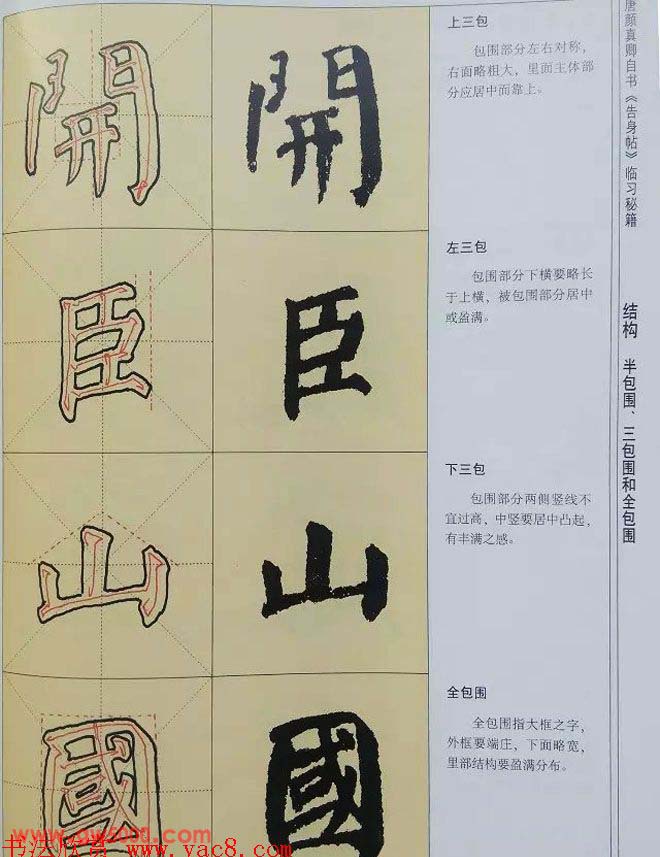 開 開
上三包
包围部分左右对称，
右面略粗大，里面主体部
分应居中而靠上。
臣 臣
左三包
包围部分下横要略长
于上横，被包围部分居中
或盈满。
山 山
下三包
包围部分两侧竖线不
宜过高，中竖要居中凸起，
有丰满之感。
國 國
全包围
全包围指大框之字，
外框要端庄，下面略宽，
里部结构要盈满分布。
唐颜真卿自书《告身帖》临习秘籍
结构 半包围、三包围和全包围
书法欣赏 www.yac8.com